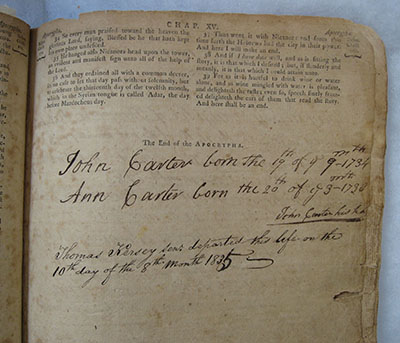 CHAP. XV.
Apocrypha
34 So every man praised toward the heaven the
glorious Lord, saying, Blessed be he that hath kept
his own place undefiled.
35 He hanged also Nicanors head upon the tower,
an evident and manifest sign unto all of the help of
the Lord.
36 And they ordained all with a common decree,
in no case to let that day pass without solemnity, but
to celebrate the thirteenth day of the twelfth month,
which in the Syrian tongue is called Adar, the day
before Mardocheus day.
37 Thus went it with Nicanor: and from that
time forth the Hebrews had the city in their power.
And here will I make an end.
38 And if I have done well, and as is fitting the
story, it is that which I desired; but, if slenderly and
meanly, it is that which I could attain unto.
39 For as it is hurtful to drink wine or water
alone; and as wine mingled with water is pleasant,
and delighteth the taste: even so, speech finely fram-
ed delighteth the ears of them that read the story.
And here shall be an end.
The End of the APOCRYPHA.
John Carter born the 19th of ye 9 mth-1734
Ann Carter born the 20th of ye 3 mth-173
John Carter his
Thomas Kersey senr departed this life on the
10th day of the 8th Month 1835